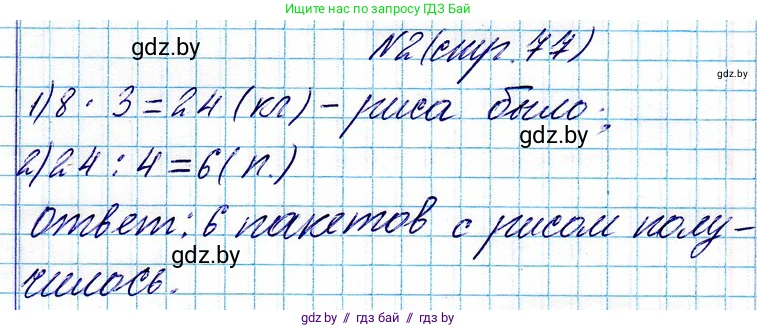 Ищите нас по запросу ГДЗ Бай
gdz.by
№2 (стр. 77)
gdz.by
1) 8 · 3 = 24 (кг) - риса было;
gdz.by
2) 24 : 4 = 6 (п.)
ответ: 6 пакетов с рисом полу-
gdz.by
чилось.
gdz.by // гдз бай // gdz by